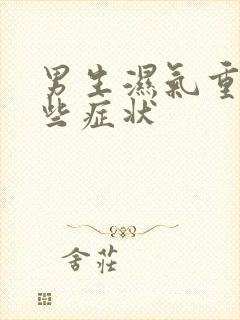 男生濕氣重
些症状
舍莊